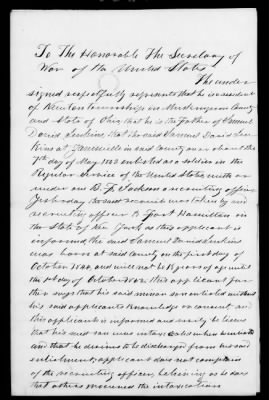 To The Honorable The Secretary of
War of the United States
The under
signed respectfully represents that he is a resident
of Newton township in Muskingum County
and State of Ohio, that he is the Father of Samuel
Davis Jenkins, that the said Samuel Davis Jen
kins at Zanesville in said County on or about the
7th day of May 1862 enlisted as a soldier in the
Regular Service of the United States, with or
under one B. F. Jackson a recruiting officer
Yesterday the said recruit was taken by said
recruiting officer to Fort Hamilton in
the State of New York as this applicant is
informed, the said Samuel Davis Jenkins
was born at said County on the first day of
October 1844, and will not be 18 years of age until
the 1st day of October 1862. this applicant fur
ther says that his said minor son enlisted without
his said applicants Knowledge or consent as
this applicant is informed and verily believes
that his said son was intoxicated when he enlisted
and that he desires to be discharged from his said
enlistment; applicant does not complain
of the recruiting officer, believing as he does
that others procured the intoxication